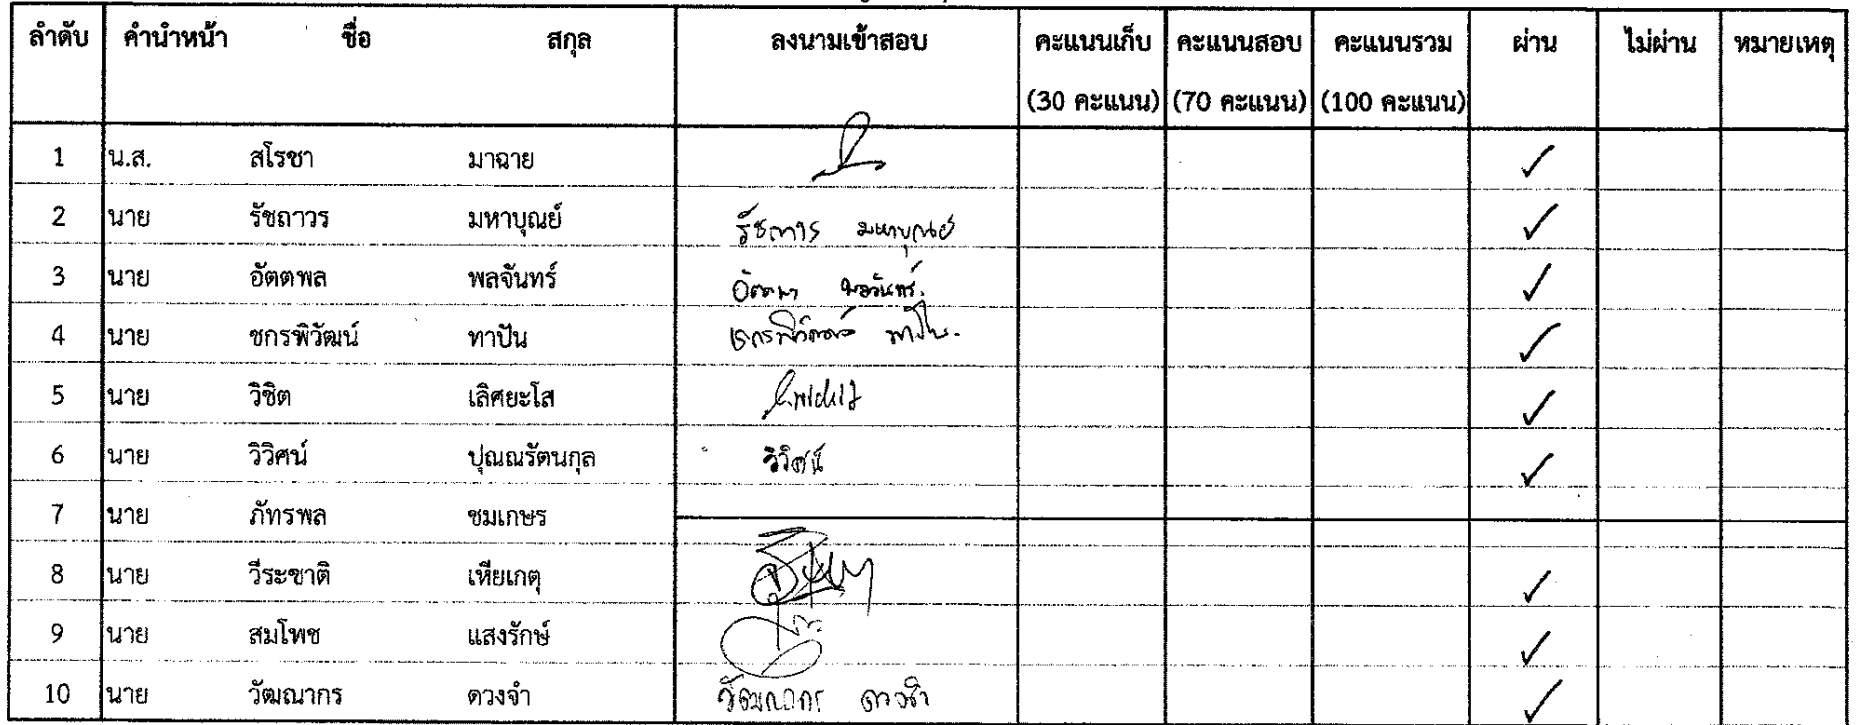 ลำดับ คำนำหน้า ชื่อ สกุล ลงนามเข้าสอบ คะแนนเก็บ คะแนนสอบ คะแนนรวม ผ่าน ไม่ผ่าน หมายเหตุ
(30 คะแนน) (70 คะแนน) (100 คะแนน)
1 น.ส. สโรชา มาฉาย ✓
2 นาย รัชถาวร มหาบุณย์ รัชถาวร มหาบุณย์ ✓
3 นาย อัตตพล พลจันทร์ อัตตพล พลจันทร์. ✓
4 นาย ชกรพิวัฒน์ ทาปัน ชกรพิวัฒน์ ทาปัน. ✓
5 นาย วิชิต เลิศยะโส ✓
6 นาย วิวิศน์ ปุณณรัตนกุล วิวิศน์ ✓
7 นาย ภัทรพล ชมเกษร
8 นาย วีระชาติ เหียเกตุ ✓
9 นาย สมโพช แสงรักษ์ ✓
10 นาย วัฒณากร ดวงจำ วัฒณากร ดวงจำ ✓